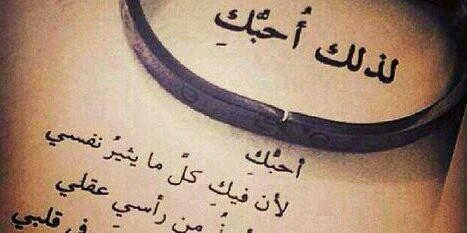 لذلك أُحبُّكِ
أحبُّكِ
لأن فيكِ كلَّ ما يثيرُ نفسي
من رأسي عقلي
في قلبي